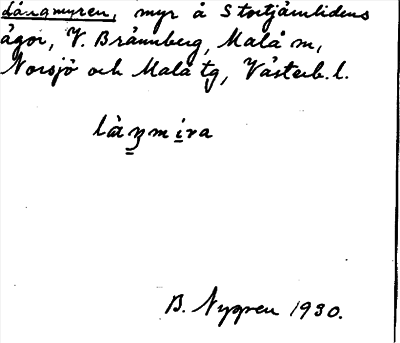 Långmyren, myr å Stortjärnlidens
ägor, V. Brännberg, Malå m,
Norsjö och Malå tg, Västerb. l.
làŋmira
B. Nygren 1930.